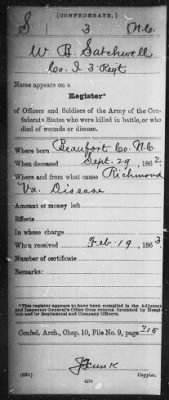 (CONFEDERATE.)
S 3 N.C.
W B Satchwell
Co. I 3 Regt
Name appears on a
Register*
of Officers and Soldiers of the Army of the Confederate States who were killed in battle, or who died of wounds or disease.
Where born Beaufort Co. N.C
When deceased Sept. 29, 1862
Where and from what cause Richmond
Va. Disease
Amount of money left
Effects
In whose charge
When received Feb. 19, 1863
Number of certificate
Remarks:
*This register appears to have been compiled in the Adjutant and Inspector General's Office from returns furnished by Hospitals and by Regimental and Company Officers.
Confed. Arch., Chap. 10, File No. 9, page 215
Copyist.